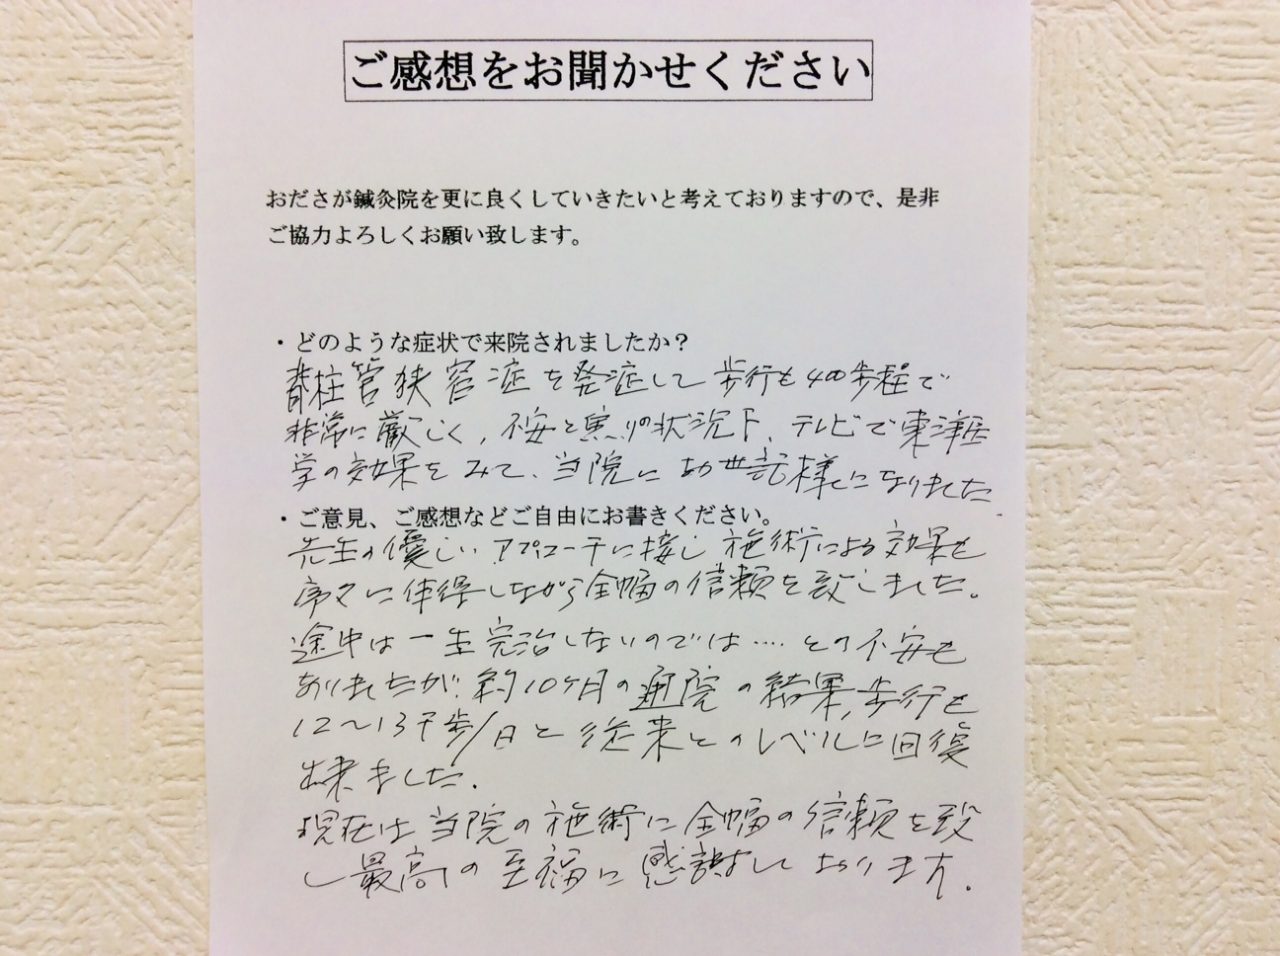 ご感想をお聞かせください
おださが鍼灸院を更に良くしていきたいと考えておりますので、是非
ご協力よろしくお願い致します。
・どのような症状で来院されましたか？
脊柱管狭窄症を発症して歩行も400歩程で
非常に厳しく、不安と焦りの状況下、テレビで東洋医
学の効果をみて、当院にお世話様になりました
・ご意見、ご感想などご自由にお書きください。
先生の優しいアプローチに接し施術による効果も
序々に体得しながら全幅の信頼を致しました。
途中は一生完治しないのでは‥‥との不安も
ありましたが、約10ヶ月の通院の結果、歩行も
12〜13千歩/日と従来とのレベルに回復
出来ました.
現在は当院の施術に全幅の信頼を致
し最高の至福に感謝しております。